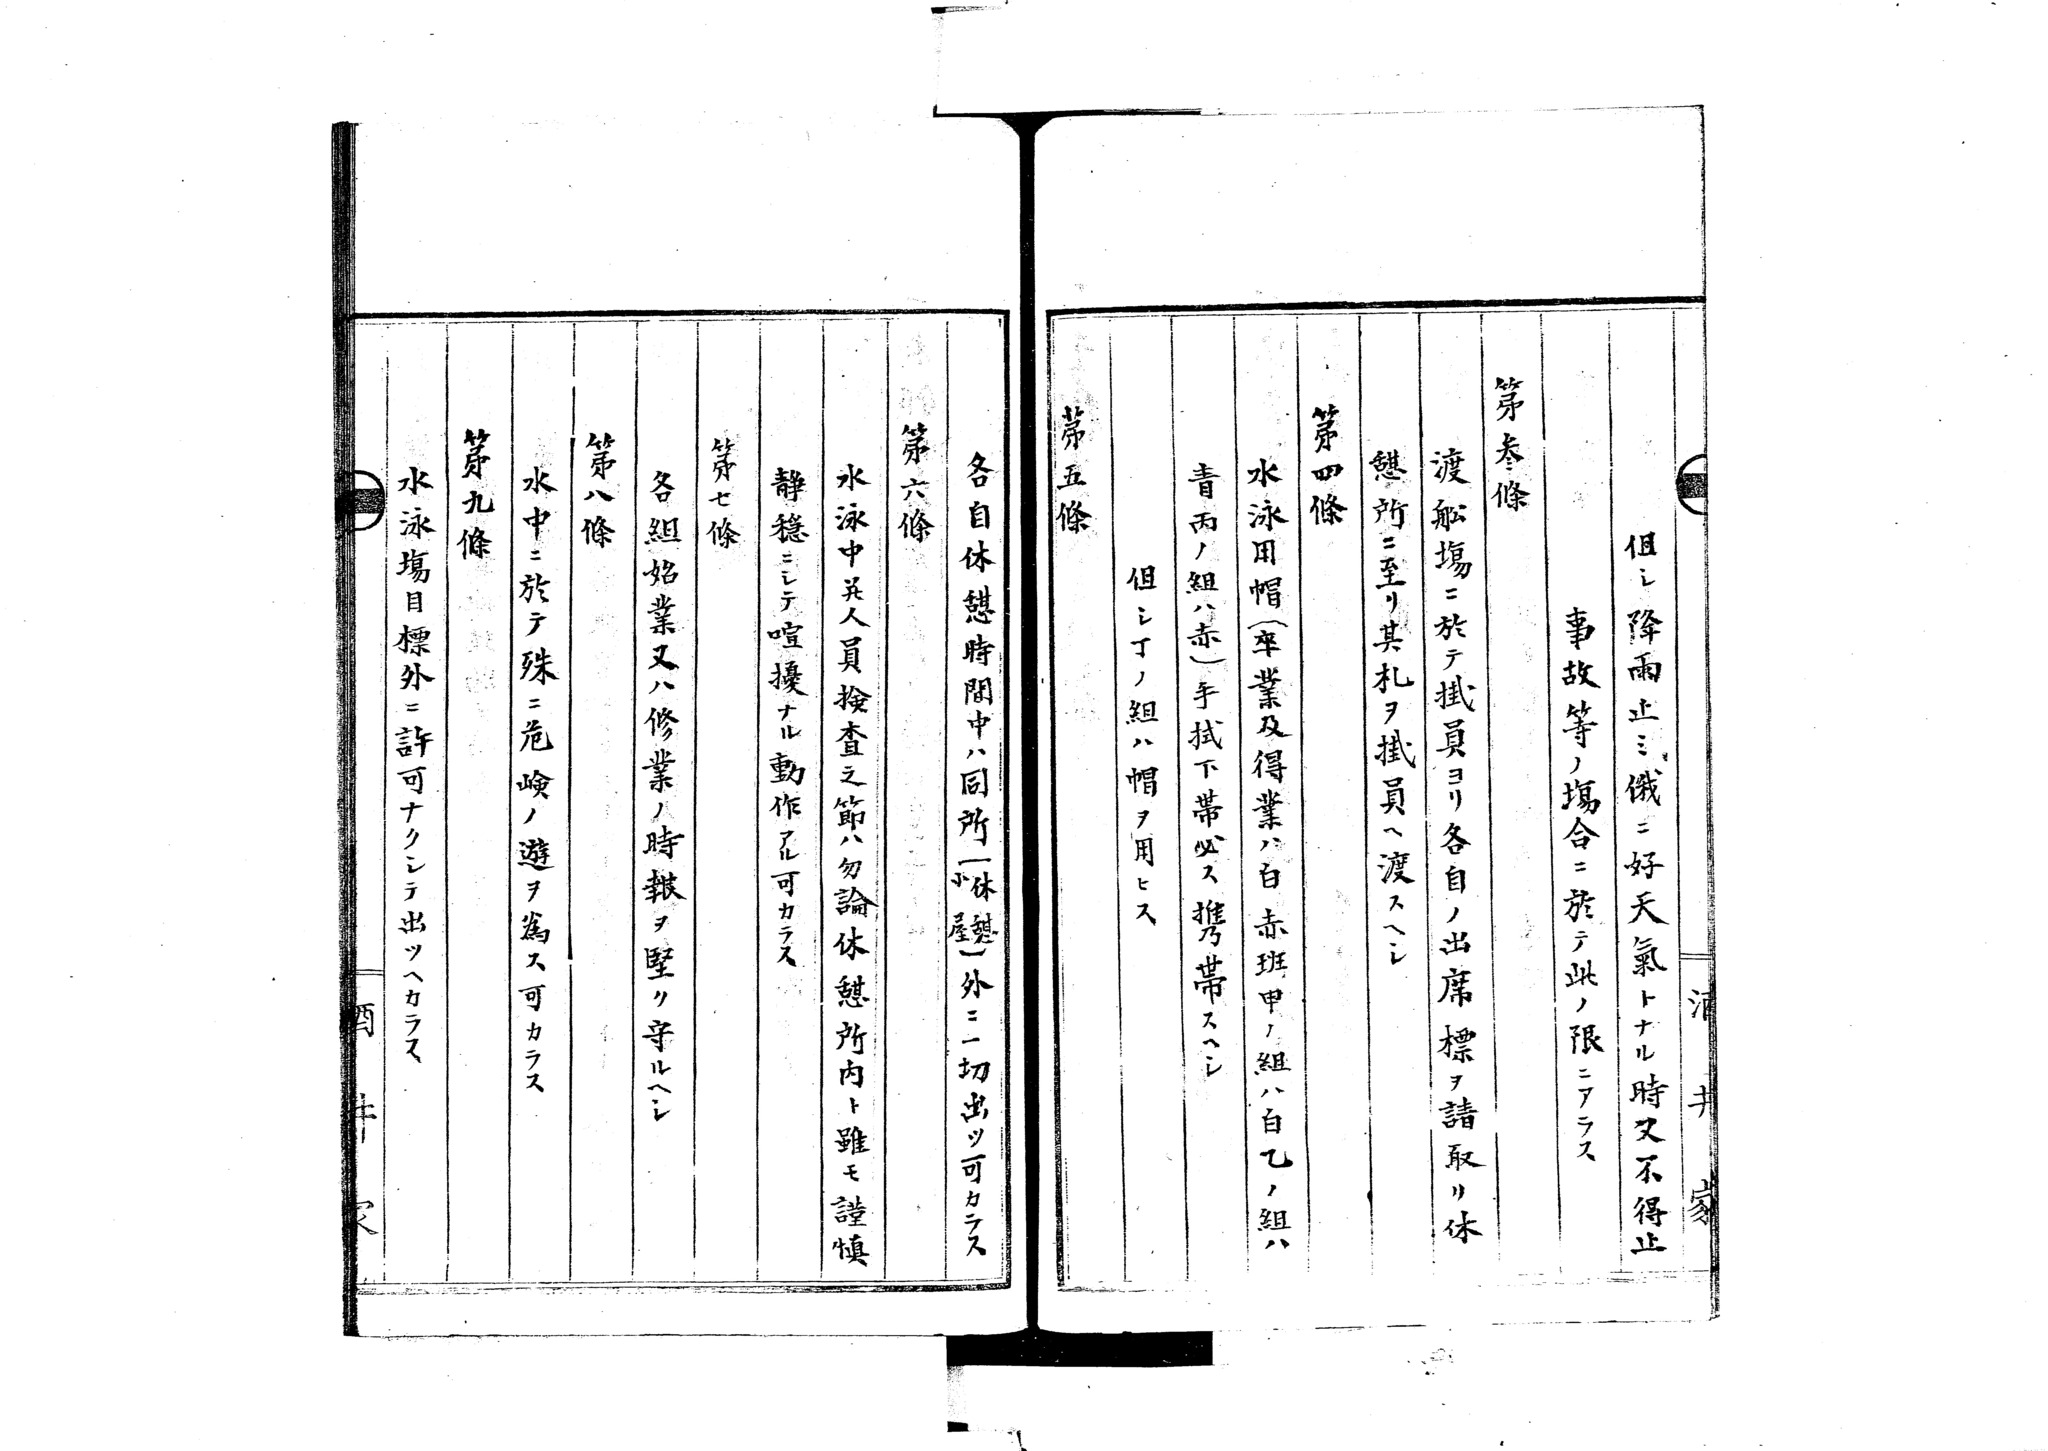 但シ降雨止ミ俄ニ好天氣トナル時又不得止
事故等ノ塲合ニ於テ此ノ限ニアラス
第叄條
渡舩塲ニ於テ掛員ヨリ各自ノ出席標ヲ請取リ休
憩所ニ至リ其札ヲ掛員ヘ渡スヘシ
第四條
水泳用帽(卒業及得業ハ白赤班甲ノ組ハ白乙ノ組ハ
青丙ノ組ハ赤)手拭下帯必ス携帯スヘシ
但シ丁ノ組ハ帽ヲ用ヒス
第五條
各自休憩時間中ハ同所(休憩小屋)外ニ一切出ツ可カラス
第六條
水泳中并人員檢査之節ハ勿論休憩所内ト雖モ謹慎
静穏ニシテ喧擾ナル動作アル可カラス
第七條
各組始業又ハ修業ノ時報ヲ堅リ守ルヘシ
第八條
水中ニ於テ殊ニ危険ノ遊ヲ為ス可カラス
第九條
水泳塲目標外ニ許可ナクシテ出ツヘカラス
酒井家
酒井家